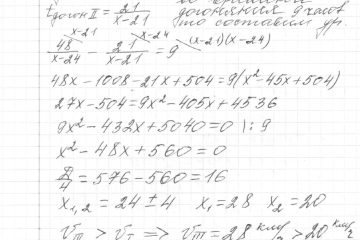 t догон II = 21/(x-21)
догоняния 9 часов
то составим ур.
x-21 x-24 (x-21)(x-24)
48/(x-24) - 21/(x-21) = 9
48x-1008-21x+504=9(x²-45x+504)
27x-504=9x²-405x+4536
9x²-432x+5040=0 |:9
x²-48x+560=0
D/4=576-560=16
x₁,₂=24±4 x₁=28 x₂=20
V III > V I => V III = 28 км/ч > 20 км/ч